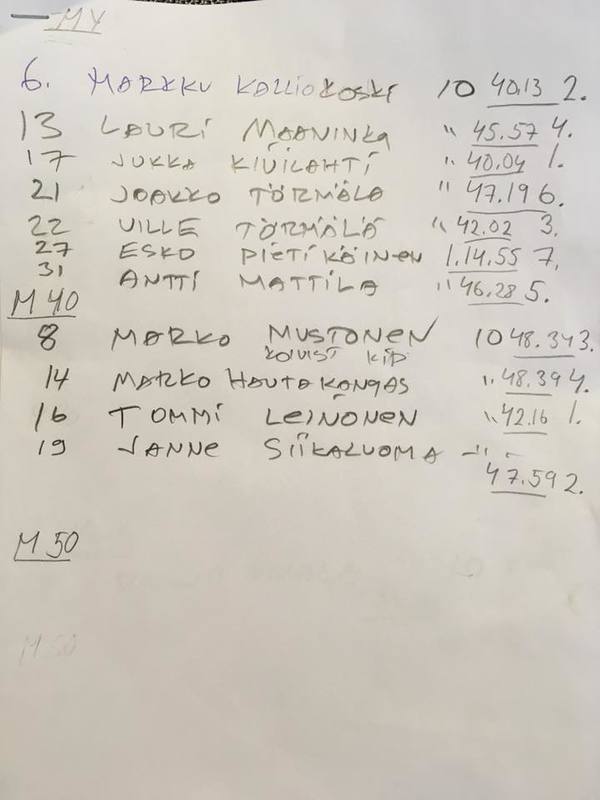 MY
6. MARKKU KALLIOKOSKI 10 40.13 2.
13 LAURI MAANINKA " 45.57 4.
17 JUKKA KIVILAHTI " 40.04 1.
21 JAAKKO TÖRMÄLÄ " 47.19 6.
22 VILLE TÖRMÄLÄ " 42.02 3.
27 ESKO PIETIKÄINEN 1.14.55 7.
31 ANTTI MATTILA " 46.28 5.
M40
8 MARKO MUSTONEN 10 48.34 3.
KOIVIST KIP
14 MARKO HAUTAKANGAS " 48.39 4.
16 TOMMI LEINONEN " 42.16 1.
19 JANNE SIIKALUOMA -"-
47.59 2.
M 50
M50